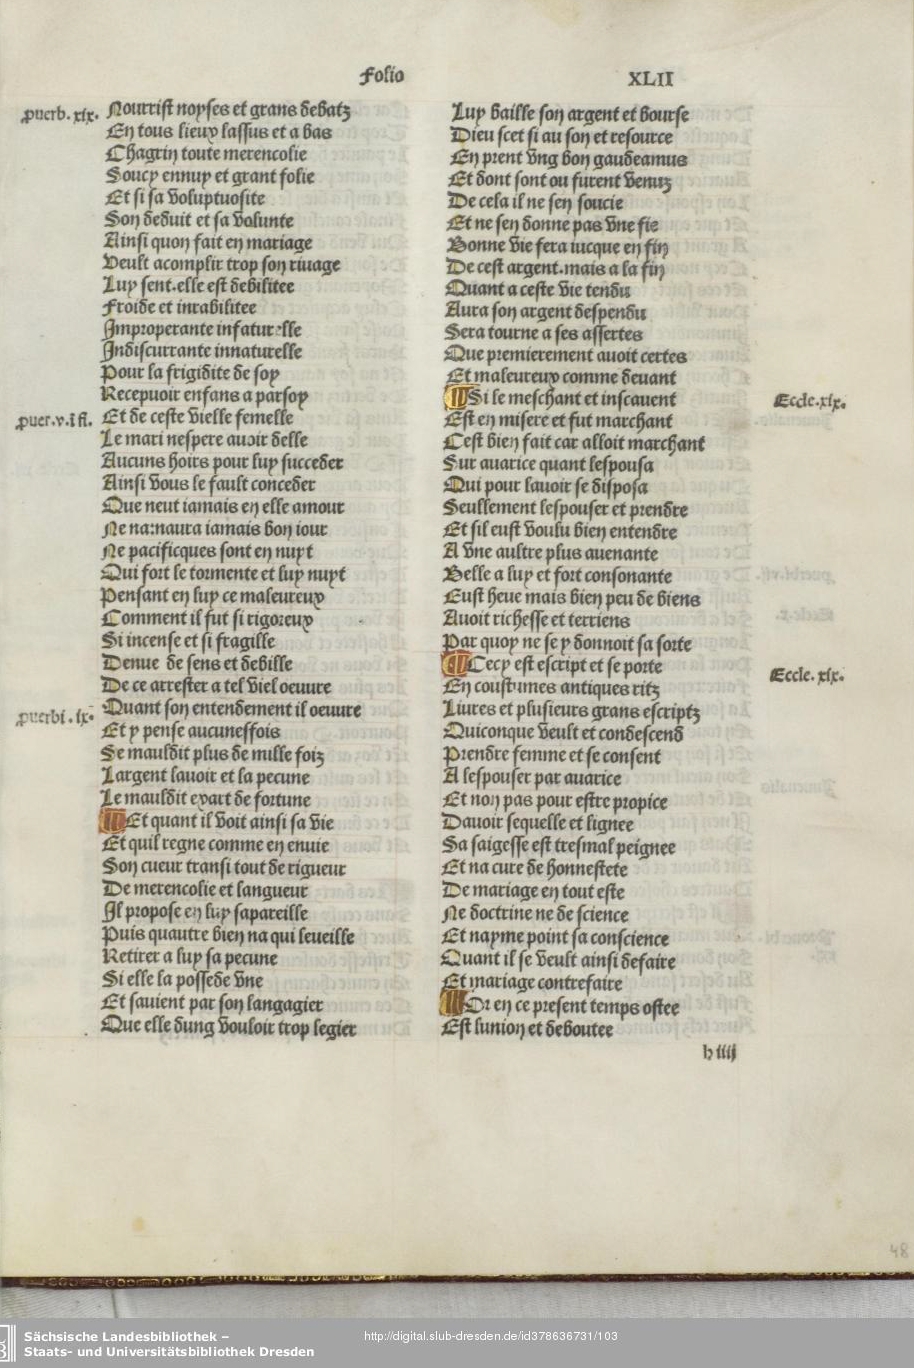 Folio
XLII
puerb. xix.
Nourrist noyses et grans debatz
En tous lieux lassus et a bas
Chagrin toute merencolie
Soucy ennuy et grant folie
Et si sa voluptuosite
Son deduit et sa volunte
Ainsi quon fait en mariage
Veult acomplir trop son riuage
Luy sent.elle est debilitee
Froide et inrabilitee
Improperante infaturelle
Indiscurrante innaturelle
Pour la frigidite de soy
Recepuoir enfans a parsoy
puer.v.i fi.
Et de ceste vielle femelle
Le mari nespere auoir delle
Aucuns hoirs pour luy succeder
Ainsi vous le fault conceder
Que neut iamais en elle amour
Ne na:naura iamais bon iour
Ne pacificques sont en nuyt
Qui fort le tormente et luy nuyt
Pensant en luy ce maleureux
Comment il fut si rigoreux
Si incense et si fragille
Denue de sens et debille
De ce arrester a tel viel oeuure
puerbi. ix.
Quant son entendement il oeuure
Et y pense aucuneffois
Se mauldit plus de mille foiz
Largent lauoir et la pecune
Le mauldit exart de fortune
¶Et quant il voit ainsi sa vie
Et quil regne comme en enuie
Son cueur transi tout de rigueur
De merencolie et langueur
Il propose en luy sapareille
Puis quautre bien na qui leueille
Retirer a luy sa pecune
Si elle la possede vne
Et sauient par son langagier
Que elle dung vouloir trop legier
Luy baille son argent et bourse
Dieu scet si au son et resource
En prent vng bon gaudeamus
Et dont sont ou furent venuz
De cela il ne sen soucie
Et ne sen donne pas vne fie
Bonne vie fera iucque en fin
De cest argent.mais a la fin
Quant a ceste vie tendu
Aura son argent despendu
Sera tourne a ses assertes
Que premierement auoit certes
Et maleureux comme deuant
¶Si le meschant et inscauent
Eccle.xix.
Est en misere et fut marchant
Cest bien fait car alloit marchant
Sur auarice quant lespousa
Qui pour lauoir se disposa
Seullement lespouser et prendre
Et sil eust voulu bien entendre
A vne aultre plus auenante
Belle a luy et fort consonante
Eust heue mais bien peu de biens
Auoit richesse et terriens
Par quoy ne se y donnoit sa sorte
¶Cecy est escript et se porte
Eccle. xix.
En coustumes antiques ritz
Liures et plusieurs grans escriptz
Quiconque veult et condescend
Prendre femme et se consent
A lespouser par auarice
Et non pas pour estre propice
Dauoir sequelle et lignee
Sa saigesse est tresmal peignee
Et na cure de honnestete
De mariage en tout este
Ne doctrine ne de science
Et nayme point sa conscience
Quant il se veult ainsi defaire
Et mariage contrefaire
¶Or en ce present temps ostee
Est lunion et deboutee
h iiij
48
Sächsische Landesbibliothek –
Staats- und Universitätsbibliothek Dresden
http://digital.slub-dresden.de/id378636731/103